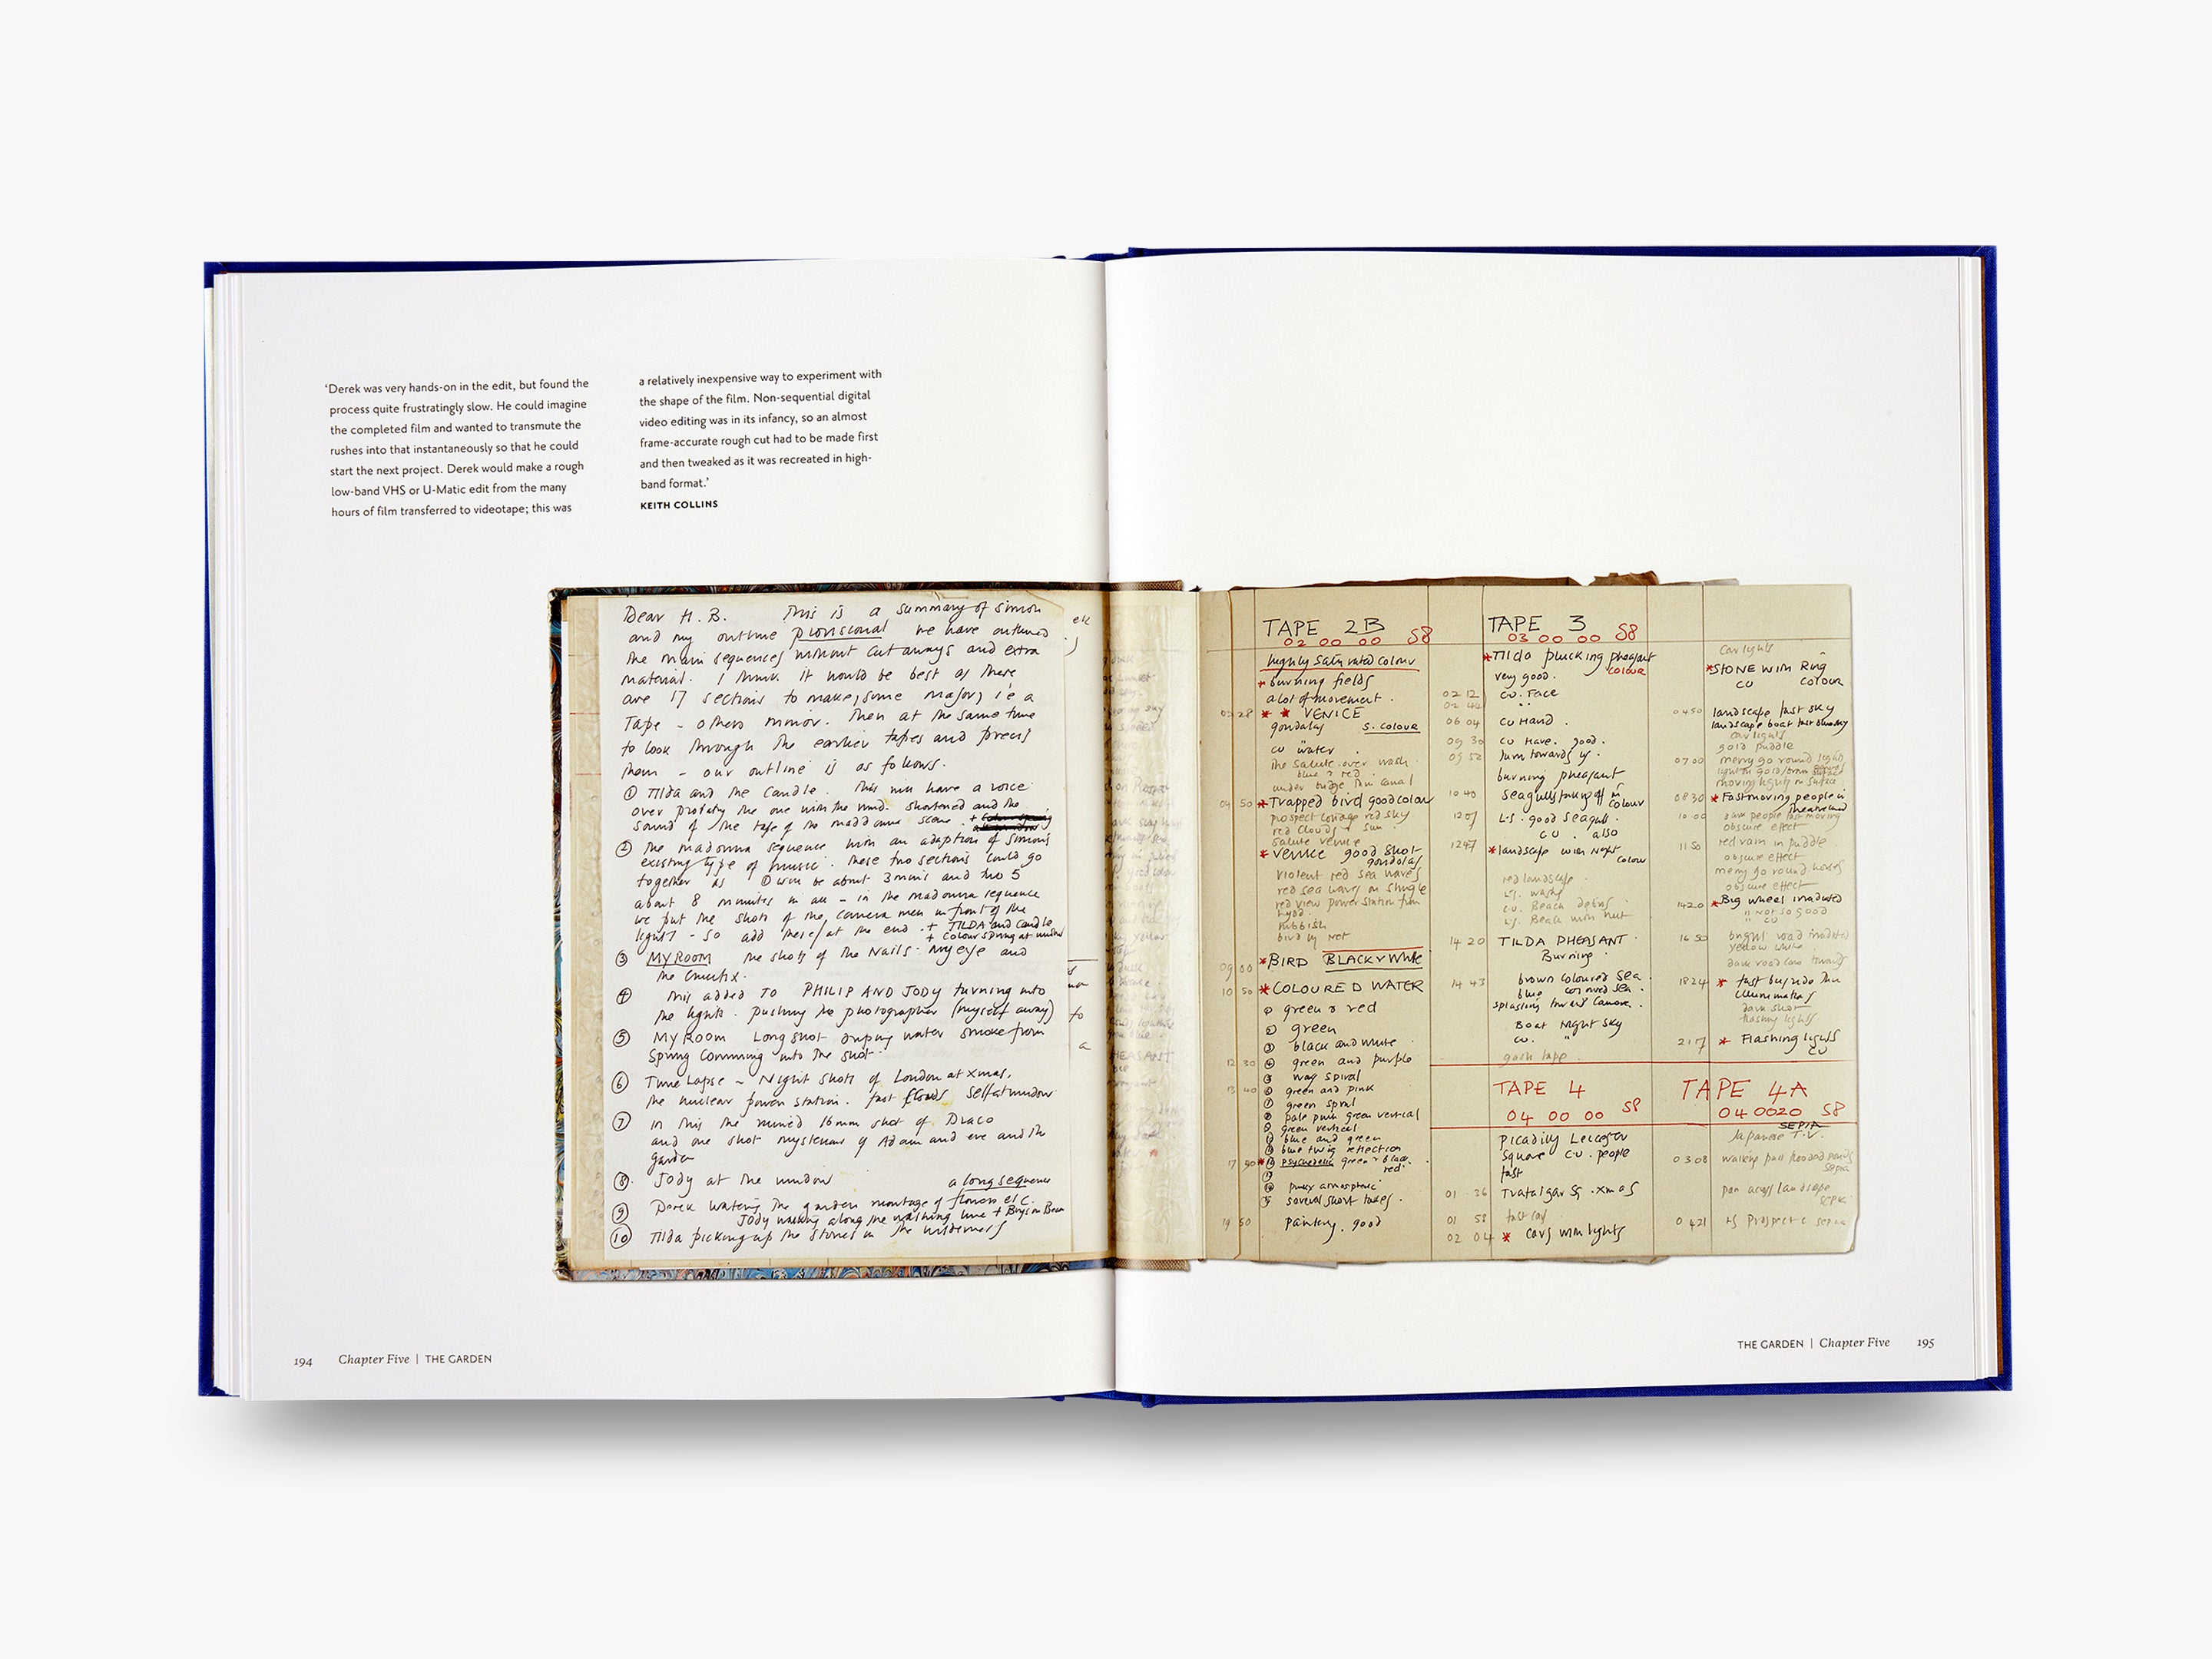 'Derek was very hands-on in the edit, but found the
process quite frustratingly slow. He could imagine
the completed film and wanted to transmute the
rushes into that instantaneously so that he could
start the next project. Derek would make a rough
low-band VHS or U-Matic edit from the many
hours of film transferred to videotape; this was
a relatively inexpensive way to experiment with
the shape of the film. Non-sequential digital
video editing was in its infancy, so an almost
frame-accurate rough cut had to be made first
and then tweaked as it was recreated in high-
band format.'
KEITH COLLINS
Dear H.B. This is a summary of Simon
and my outline provisional we have outlined
the main sequences without cut aways and extra
material. I think it would be best as there
are 17 sections to make, some major, i.e a
Tape - others minor. Then at the same time
to look through the earlier tapes and precis
them - our outline is as follows.
① Tilda and the Candle. This will have a voice
over probably the one with the wind. shortened and the
sound of the tape of the madonna scene. +
② the madonna sequence with an adaption of Simon's
existing type of music. these two sections could go
together as ① will be about 3 mins and two 5
about 8 minutes in all - in the madonna sequence
we put the shots of the camera men in front of the
lights - so add these/at the end. + TILDA and Candle
+ Colour Spring at window
③ MY ROOM the shots of the Nails. My eye and
the crucifix.
④ this added TO PHILIP AND JODY turning into
the lights. pushing the photographer (myself away)
⑤ MY ROOM Long shot dripping water smoke from
Spring Comming into the shot.
⑥ Time Lapse - Night shots of London at Xmas.
the nuclear power station. fast clouds self at window
⑦ in this the ruined 16mm shot of Draco
and one shot mysterious of Adam and eve and the
garden
⑧ Jody at the window a long sequence
⑨ Derek watering the garden montage of flowers etc.
Jody walking along the washing line + Boys on Beach
⑩ Tilda picking up the stones in the wilderness
TAPE 2B
02 00 00 S8
highly saturated colour
* burning fields
a lot of movement.
* * VENICE
gondolas S. colour
cu water
the Salute over wash
blue & red
under bridge thin canal
04 50 * Trapped bird good colour
prospect cottage red sky
red clouds & sun
Salute Venice
* Venice good shot
gondolas
violent red sea waves
red sea waves on shingle
red view power station from
rubbish
bird by net
09 00 * BIRD BLACK & White
10 50 * COLOURED WATER
① green & red
② green
③ black and white
12 30 ④ green and purple
⑤ wag spiral
13 40 ⑥ green and pink
⑦ green spiral
⑧ pale pink green vertical
⑨ green vertical
blue and green
blue twig reflection
17 50 * psychedelic green & black
red
pinky atmospheric
several short takes.
19 50 Painting. good
TAPE 3
03 00 00 S8
* Tilda plucking pheasant
very good. COLOUR
02 12 CU. Face
02 44 " "
06 04 CU Hand.
09 30 CU Have. good.
09 52 turn towards us.
burning pheasant
10 40 seagulls taking off in
colour
12 07 L.S. good Seagull.
CU. also
12 47 * landscape with Night
Colour
red landscape
L.S. waves
C.U. Beach debris
L.S. Beach with hut
14 20 TILDA PHEASANT.
Burning.
14 43 brown coloured sea.
blue coloured sea.
splashing toward camera.
Boat Night sky
CU. "
gash tape.
TAPE 4
04 00 00 S8
Picadilly Leicester
Square C.U. people
fast
01 36 Trafalgar Sq. Xmas
01 58 fast
02 04 * Cars with lights
Car lights
* STONE with Ring
CU COLOUR
04 50 landscape fast sky
landscape boat fast blue sky
car lights
gold puddle
07 00 merry go round lights
moving lights on surface
08 30 * Fast moving people in
10 00 dark people fast moving
obscure effect
11 50 red rain in puddle
obscure effect
merry go round horses
obscure effect
14 20 * Big wheel irradiated
" Not so good
" CU
16 50 bright road irradiated
yellow white
dark road come toward
18 24 * fast bus ride thin
illuminated
dark shot
flashing lights
21 17 * Flashing lights
CU
TAPE 4A
04 00 20 S8
SEPIA
Japanese T.V.
03 08 walking past
sepia
pan across landscape
sepia
04 21 Prospect C sepia
194 Chapter Five | THE GARDEN
THE GARDEN | Chapter Five 195